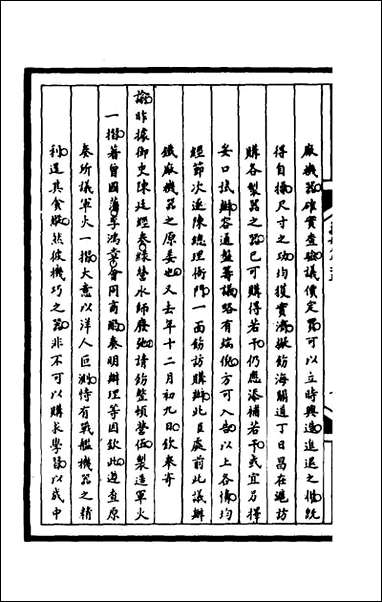 廠機器確實查驗議價定買可以立時興造進退之機既
得自操尺寸之功均獲實濟擬飭海關道丁日昌在滬訪
購各製器之器已可購得若干仍應添補若干或宜另擇
妥口試辦容通盤籌議略有端倪方可入告以上各情均
經節次逕陳總理衙門一面飭訪購辦此臣處前此議辦
鐵廠機器之原委也又去年十二月初九日欽奉寄
諭昨據御史陳廷經奏綠營水師廢弛請飭整頓營伍製造軍火
一摺著曾國藩李鴻章會同商酌奏明辦理等因欽此遵查原
奏所議軍火一摺大意以洋人叵測恃有戰艦機器之精
利逞其貪縱然彼機巧之器非不可以購求學習以成中